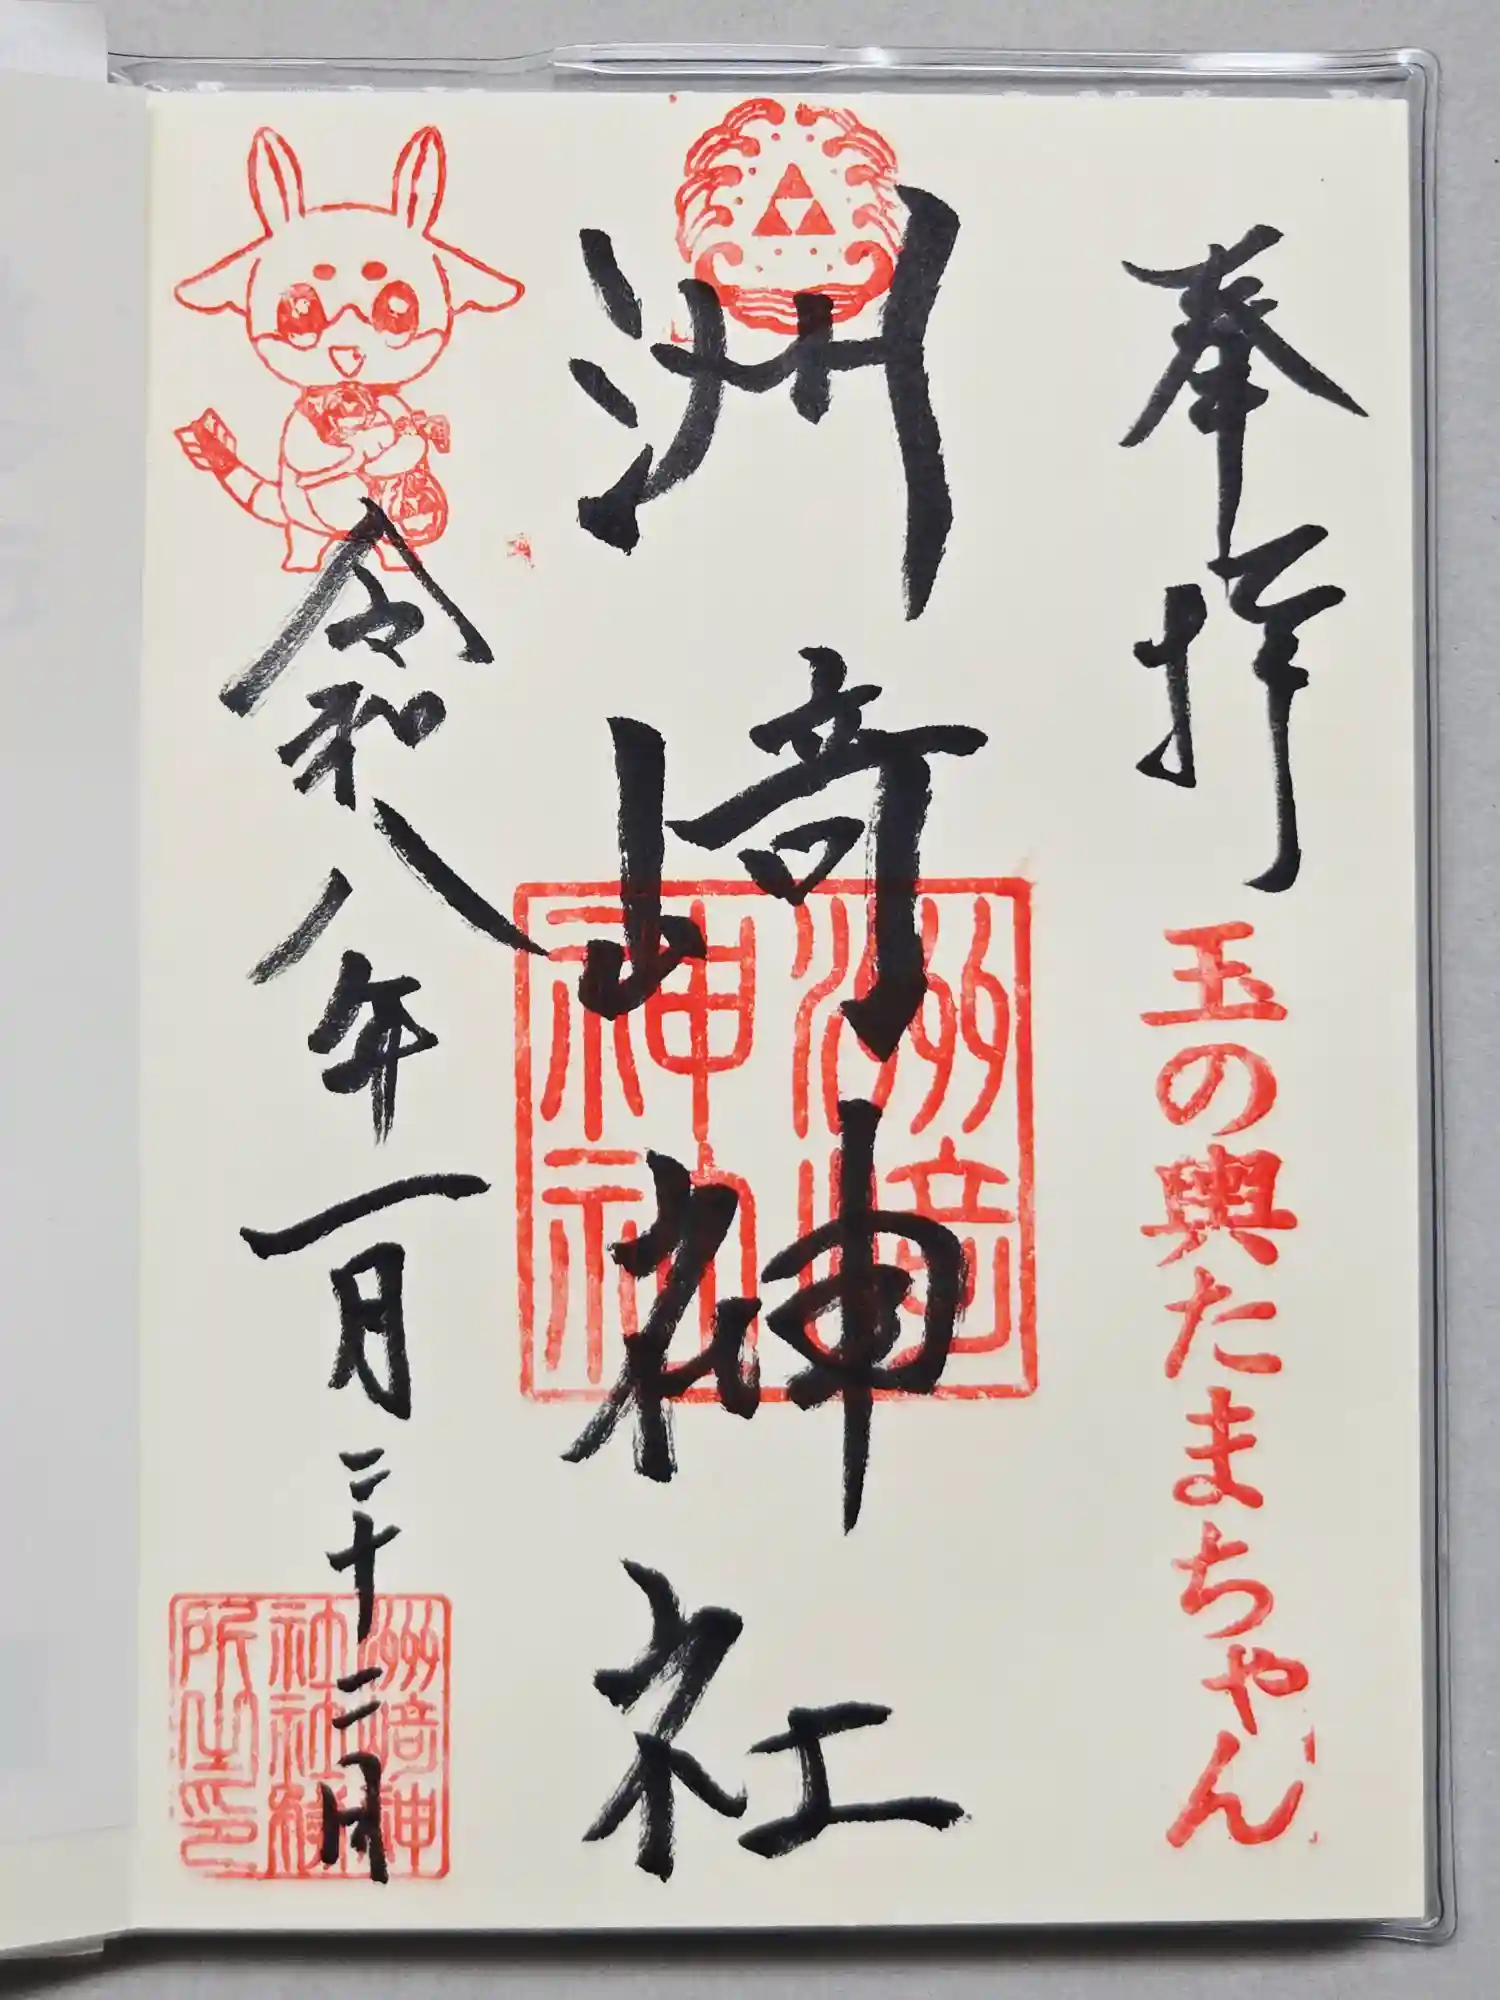 奉拝
玉の輿たまちゃん
洲崎神社
洲崎
神社
令和八年一月二十二日
洲崎神
社社務
所之印